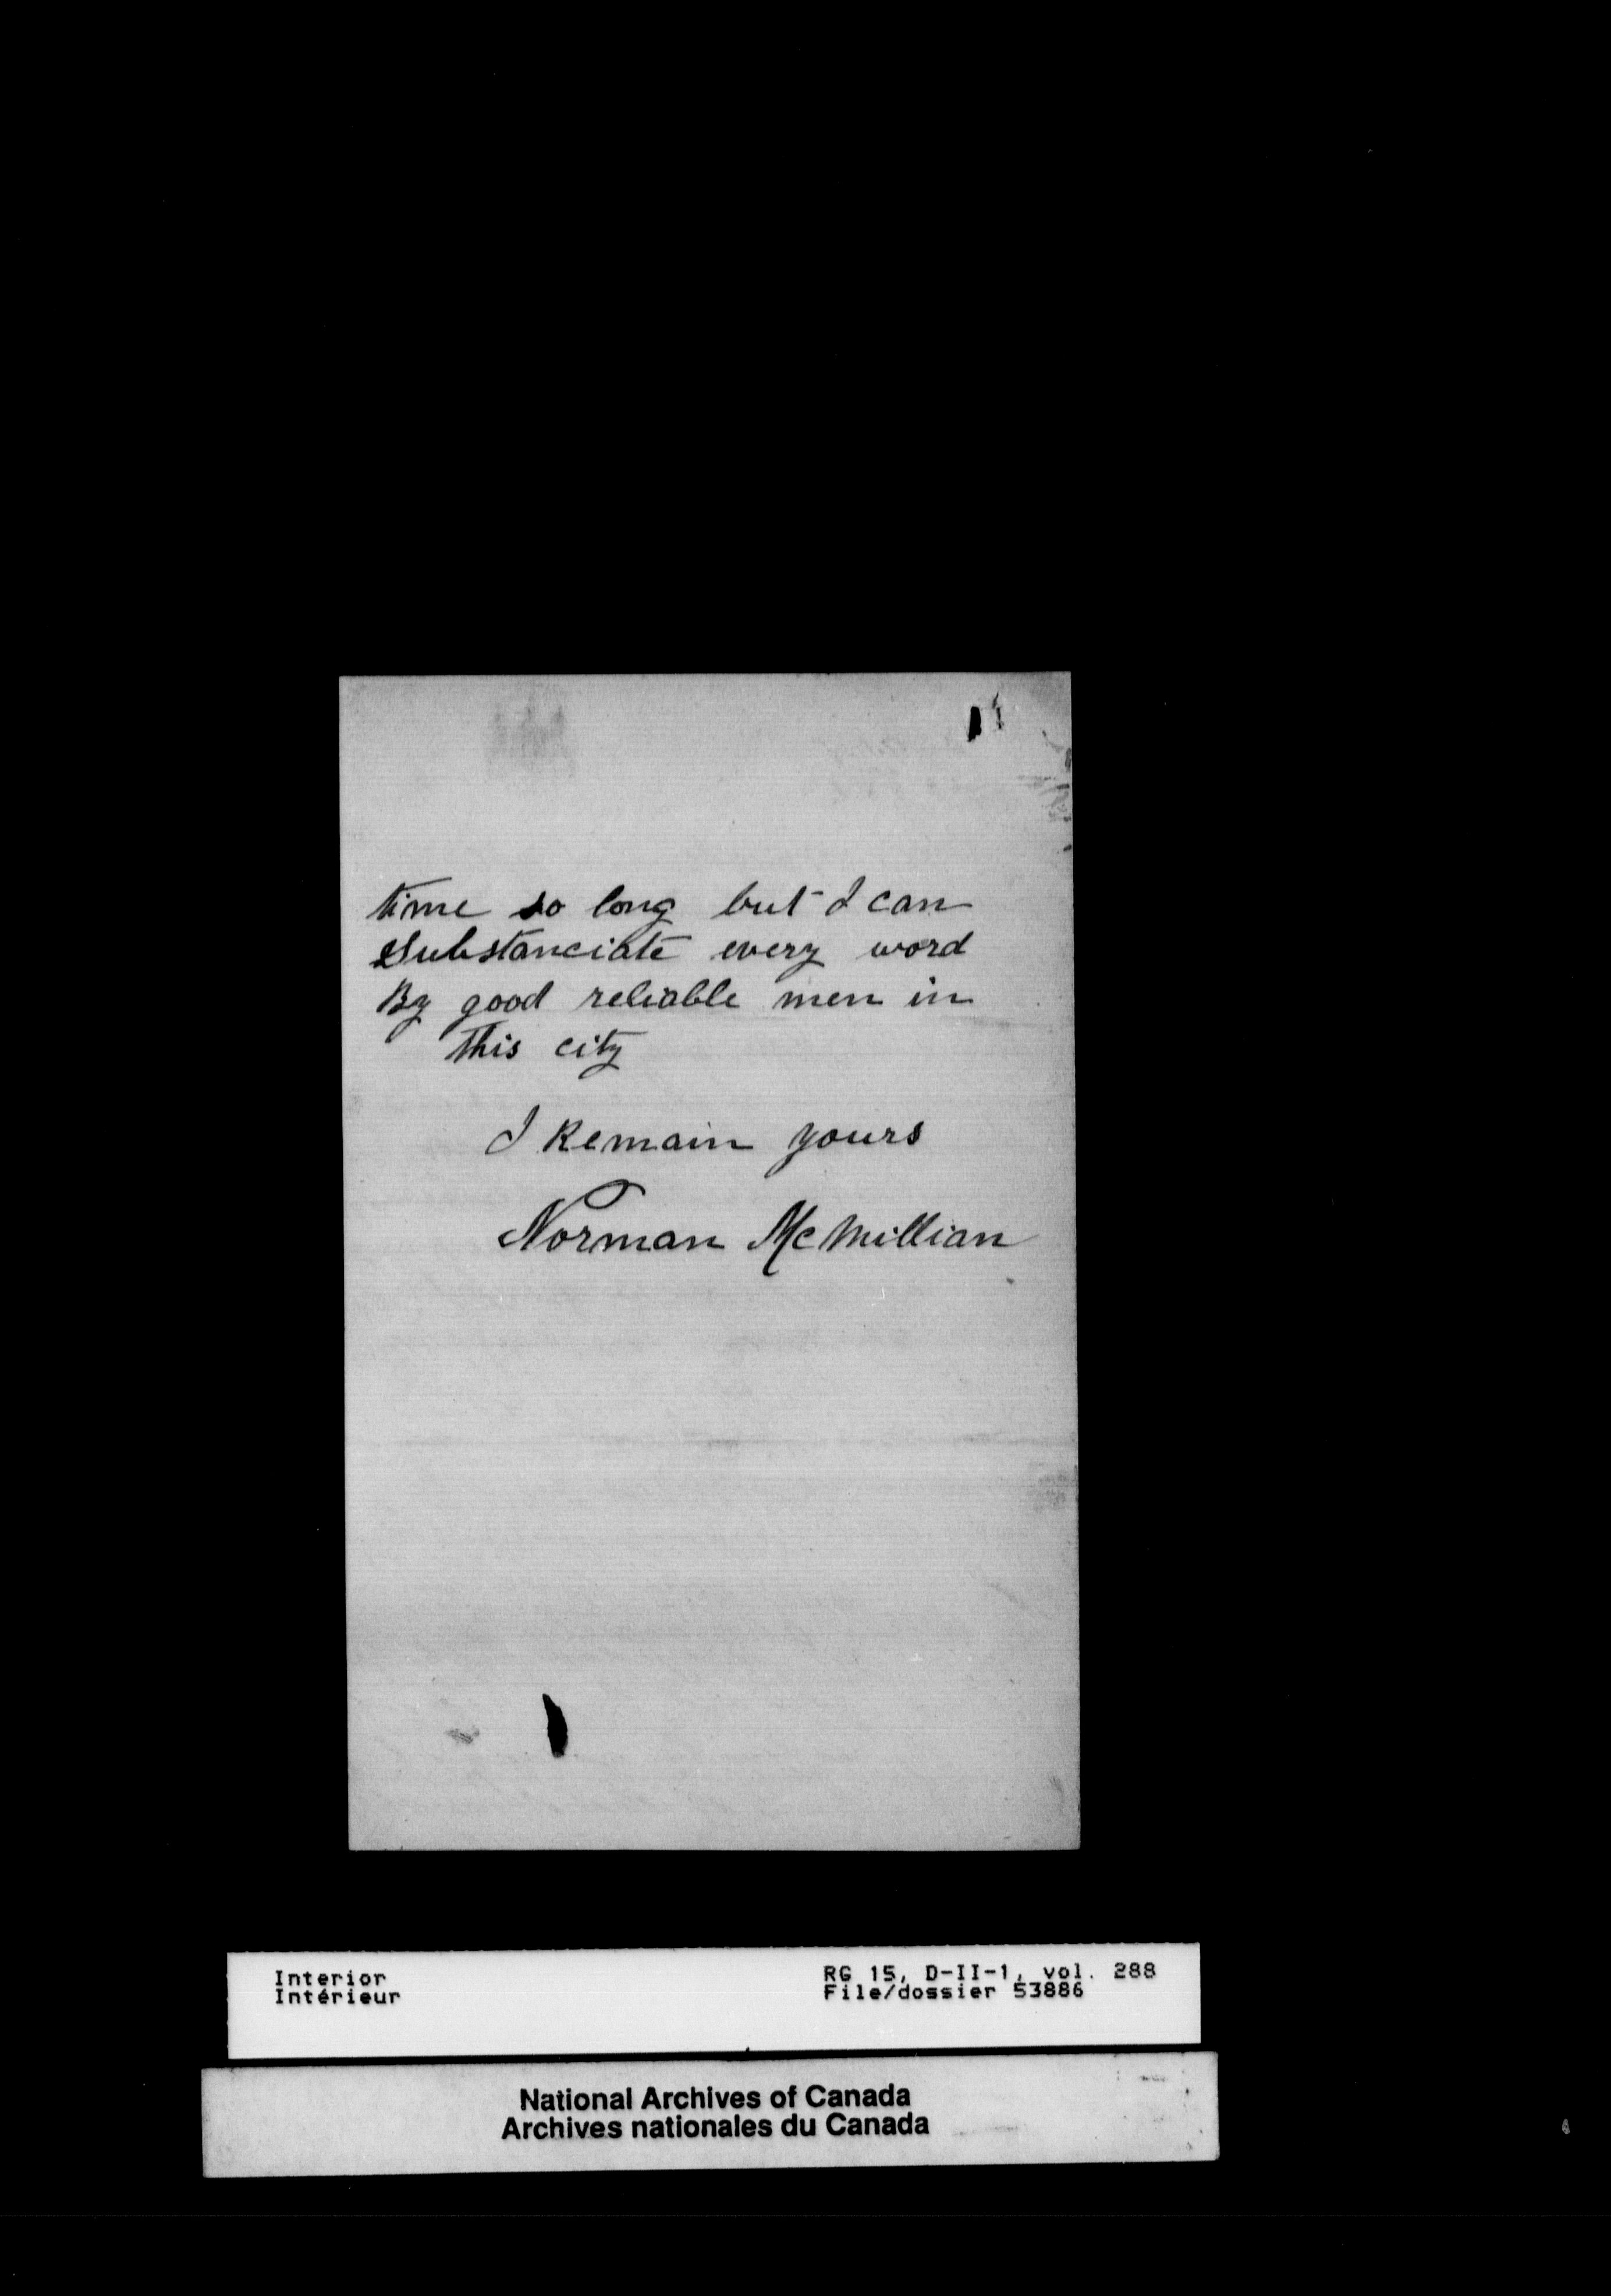 time so long but I can
Substanciate every word
By good reliable men in
this city
I Remain yours
Norman McMillian
Interior
Intérieur
RG 15, D-II-1, vol. 288
File/dossier 53886
National Archives of Canada
Archives nationales du Canada